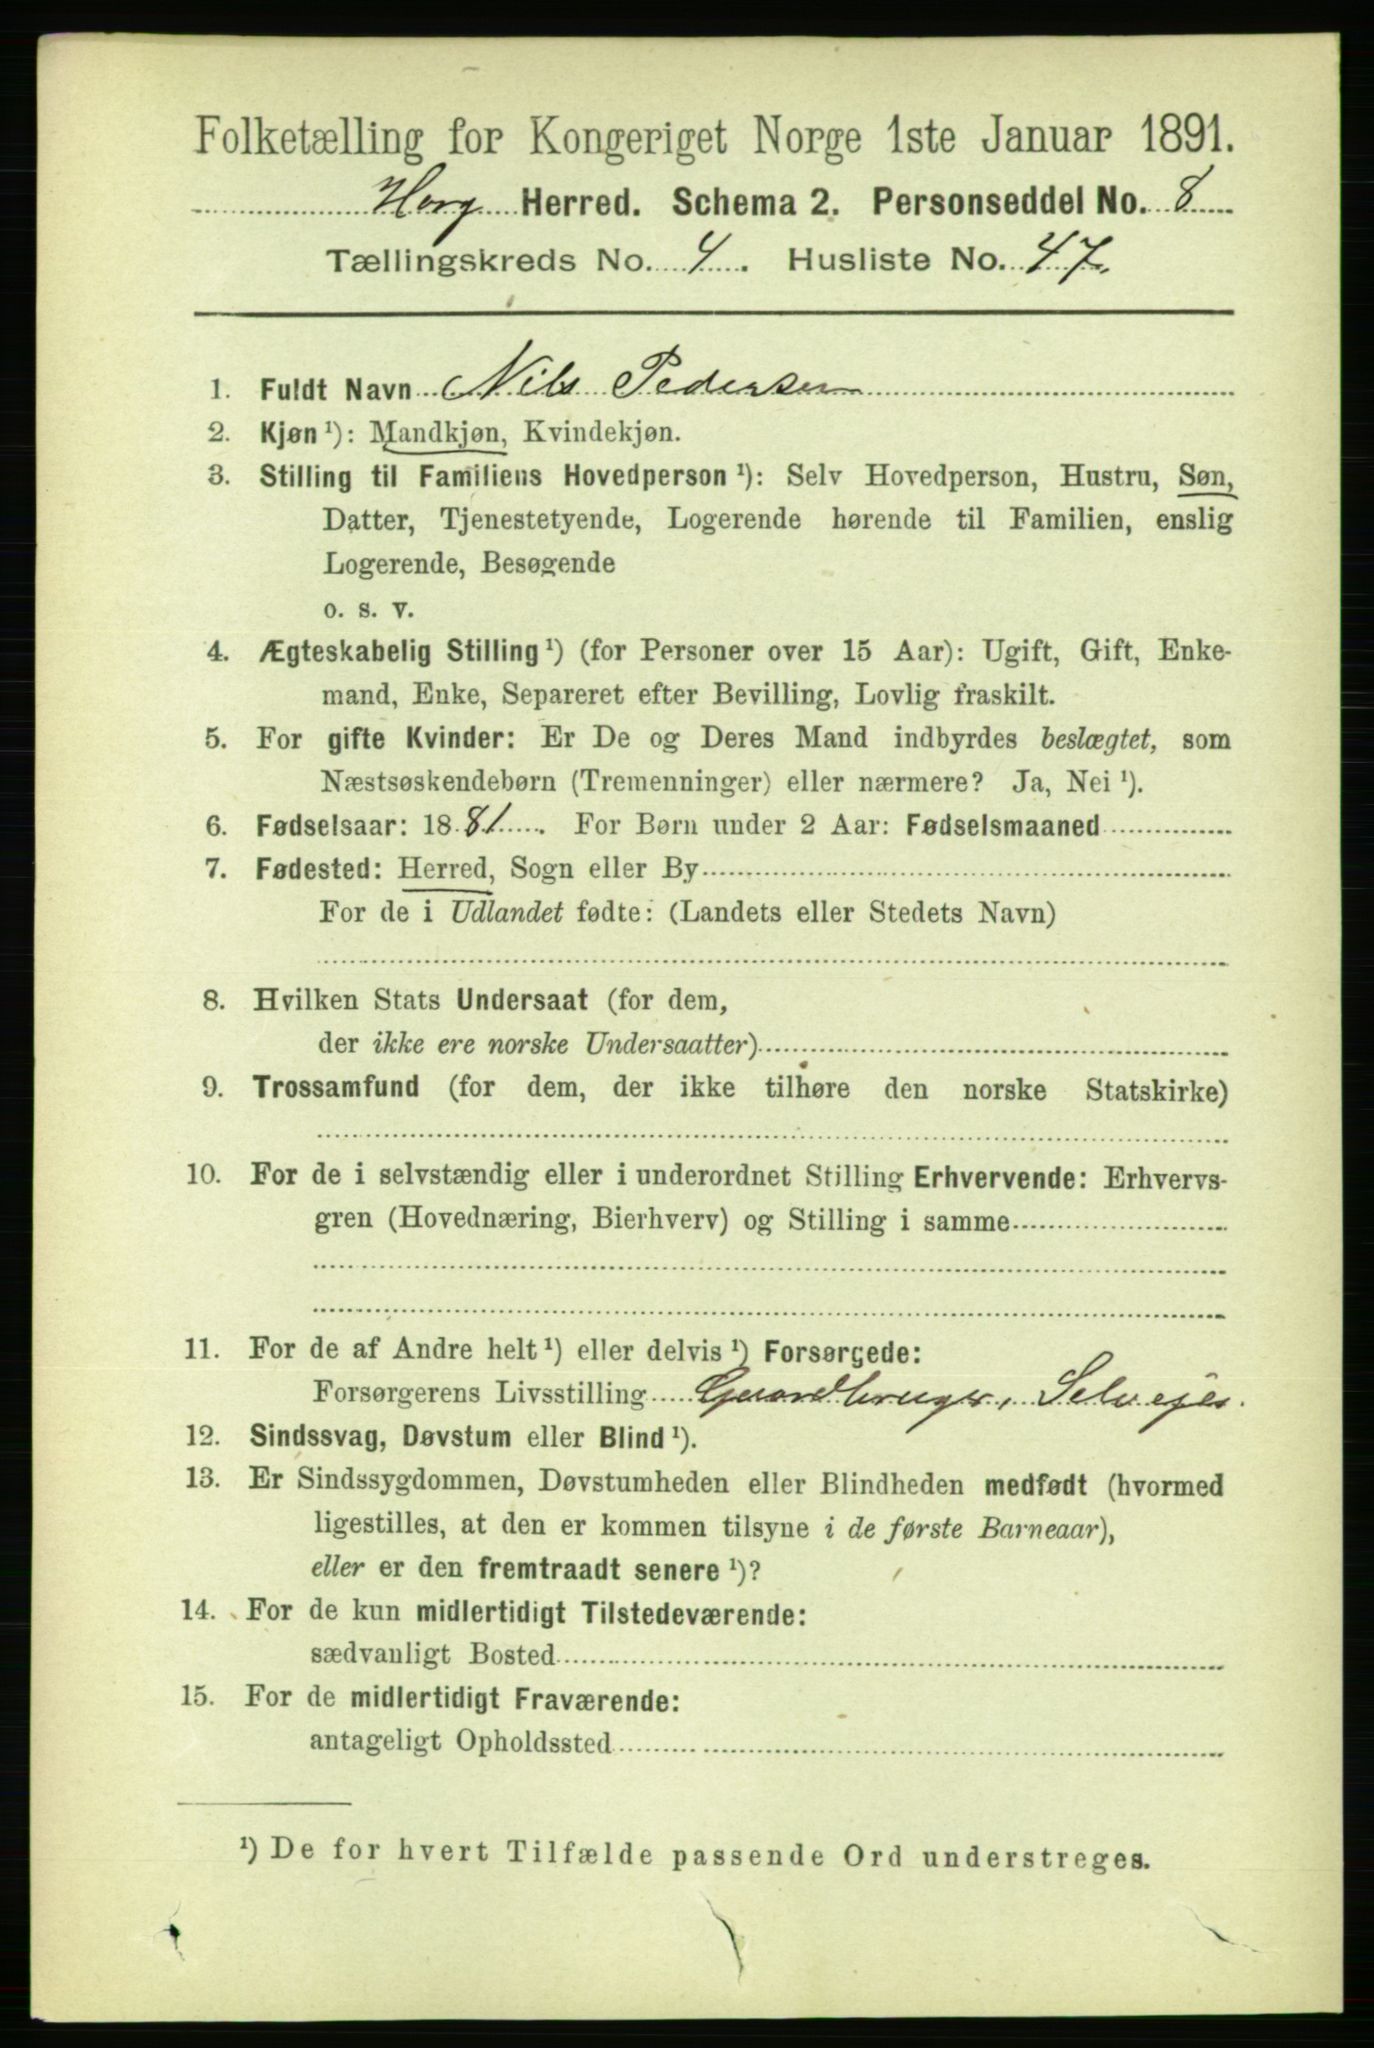 Folketælling for Kongeriget Norge 1ste Januar 1891.
Horg Herred. Schema 2. Personseddel No. 8
Tællingskreds No. 4. Husliste No. 47.
1. Fuldt Navn Nils Pedersen
2. Kjøn ¹): Mandkjøn, Kvindekjøn.
3. Stilling til Familiens Hovedperson ¹): Selv Hovedperson, Hustru, Søn,
Datter, Tjenestetyende, Logerende hørende til Familien, enslig
Logerende, Besøgende
o. s. v.
4. Ægteskabelig Stilling ¹) (for Personer over 15 Aar): Ugift, Gift, Enke-
mand, Enke, Separeret efter Bevilling, Lovlig fraskilt.
5. For gifte Kvinder: Er De og Deres Mand indbyrdes beslægtet, som
Næstsøskendebørn (Tremenninger) eller nærmere? Ja, Nei ¹).
6. Fødselsaar: 1881. For Børn under 2 Aar: Fødselsmaaned
7. Fødested: Herred, Sogn eller By
For de i Udlandet fødte: (Landets eller Stedets Navn)
8. Hvilken Stats Undersaat (for dem,
der ikke ere norske Undersaatter)
9. Trossamfund (for dem, der ikke tilhøre den norske Statskirke)
10. For de i selvstændig eller i underordnet Stilling Erhvervende: Erhvervs-
gren (Hovednæring, Bierhverv) og Stilling i samme
11. For de af Andre helt ¹) eller delvis ¹) Forsørgede:
Forsørgerens Livsstilling Gaardbruger, Selvejer.
12. Sindssvag, Døvstum eller Blind ¹).
13. Er Sindssygdommen, Døvstumheden eller Blindheden medfødt (hvormed
ligestilles, at den er kommen tilsyne i de første Barneaar),
eller er den fremtraadt senere ¹)?
14. For de kun midlertidigt Tilstedeværende:
sædvanligt Bosted
15. For de midlertidigt Fraværende:
antageligt Opholdssted
¹) De for hvert Tilfælde passende Ord understreges.